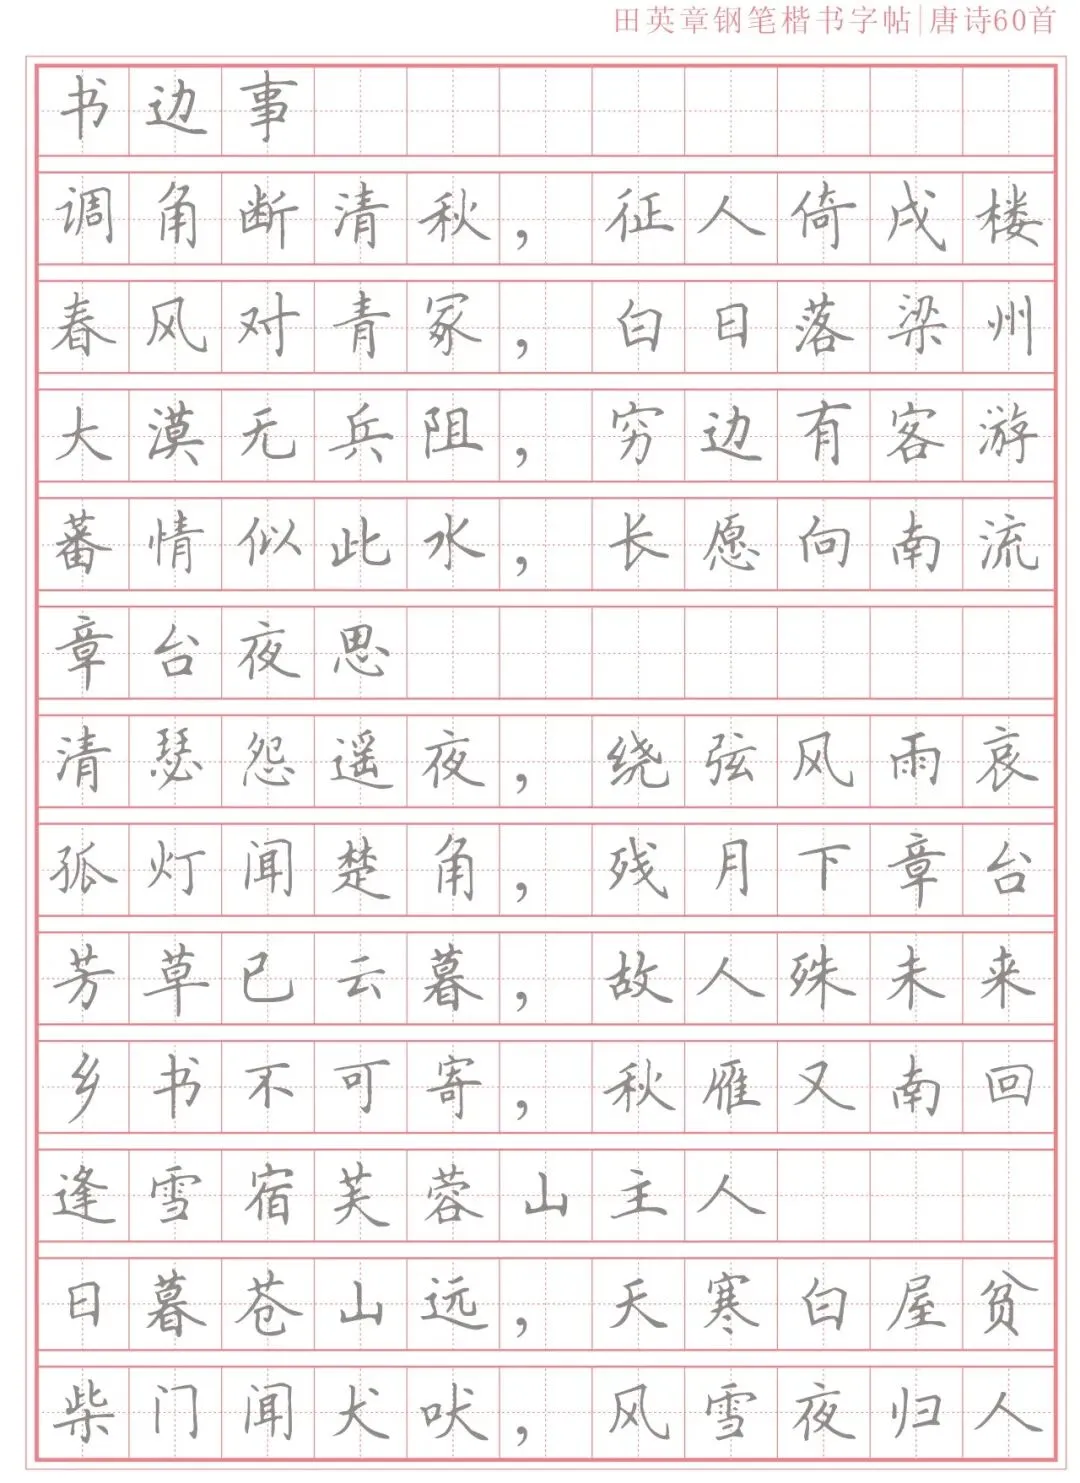 田英章钢笔楷书字帖|唐诗60首
书边事
调角断清秋，征人倚戍楼
春风对青冢，白日落梁州
大漠无兵阻，穷边有客游
蕃情似此水，长愿向南流
章台夜思
清瑟怨遥夜，绕弦风雨哀
孤灯闻楚角，残月下章台
芳草已云暮，故人殊未来
乡书不可寄，秋雁又南回
逢雪宿芙蓉山主人
日暮苍山远，天寒白屋贫
柴门闻犬吠，风雪夜归人